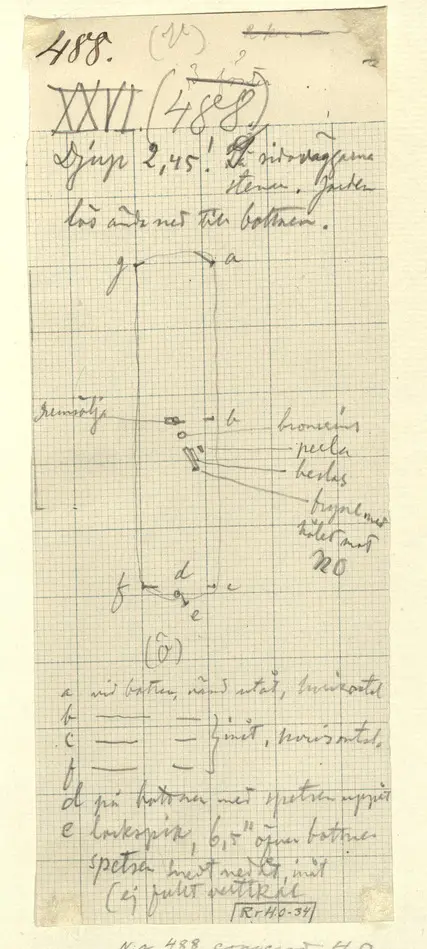 488. (V)
XXVI. (488)
Djup 2,45! I sidoväggarne
stenar. Jorden
lös ända ned till bottnen.
g a
remsölja b
bronsring
perla
beslag
bryne med
hålet mot
NO
f d c
e
(Ö)
a vid botten, vänd utåt, horisontal
b — —
c — — } inåt, horisontal.
f — —
d på bottnen med spetsen uppåt
e lockspik, 6,5" öfver bottnen
spetsen snedt nedåt, inåt
(ej fullt vertikal
RrH.O-34
488 H.O.